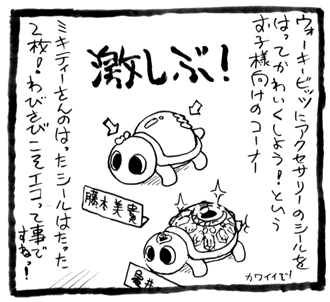 ウォーキービッツにアクセサリーのシールを
はってかわいくしよう！という
お子様向けのコーナー
激しぶ！
藤木美貴
カワイイで！
ミキティーさんのはったシールはたった
２枚！わびさびこそエコって事で
すね？！